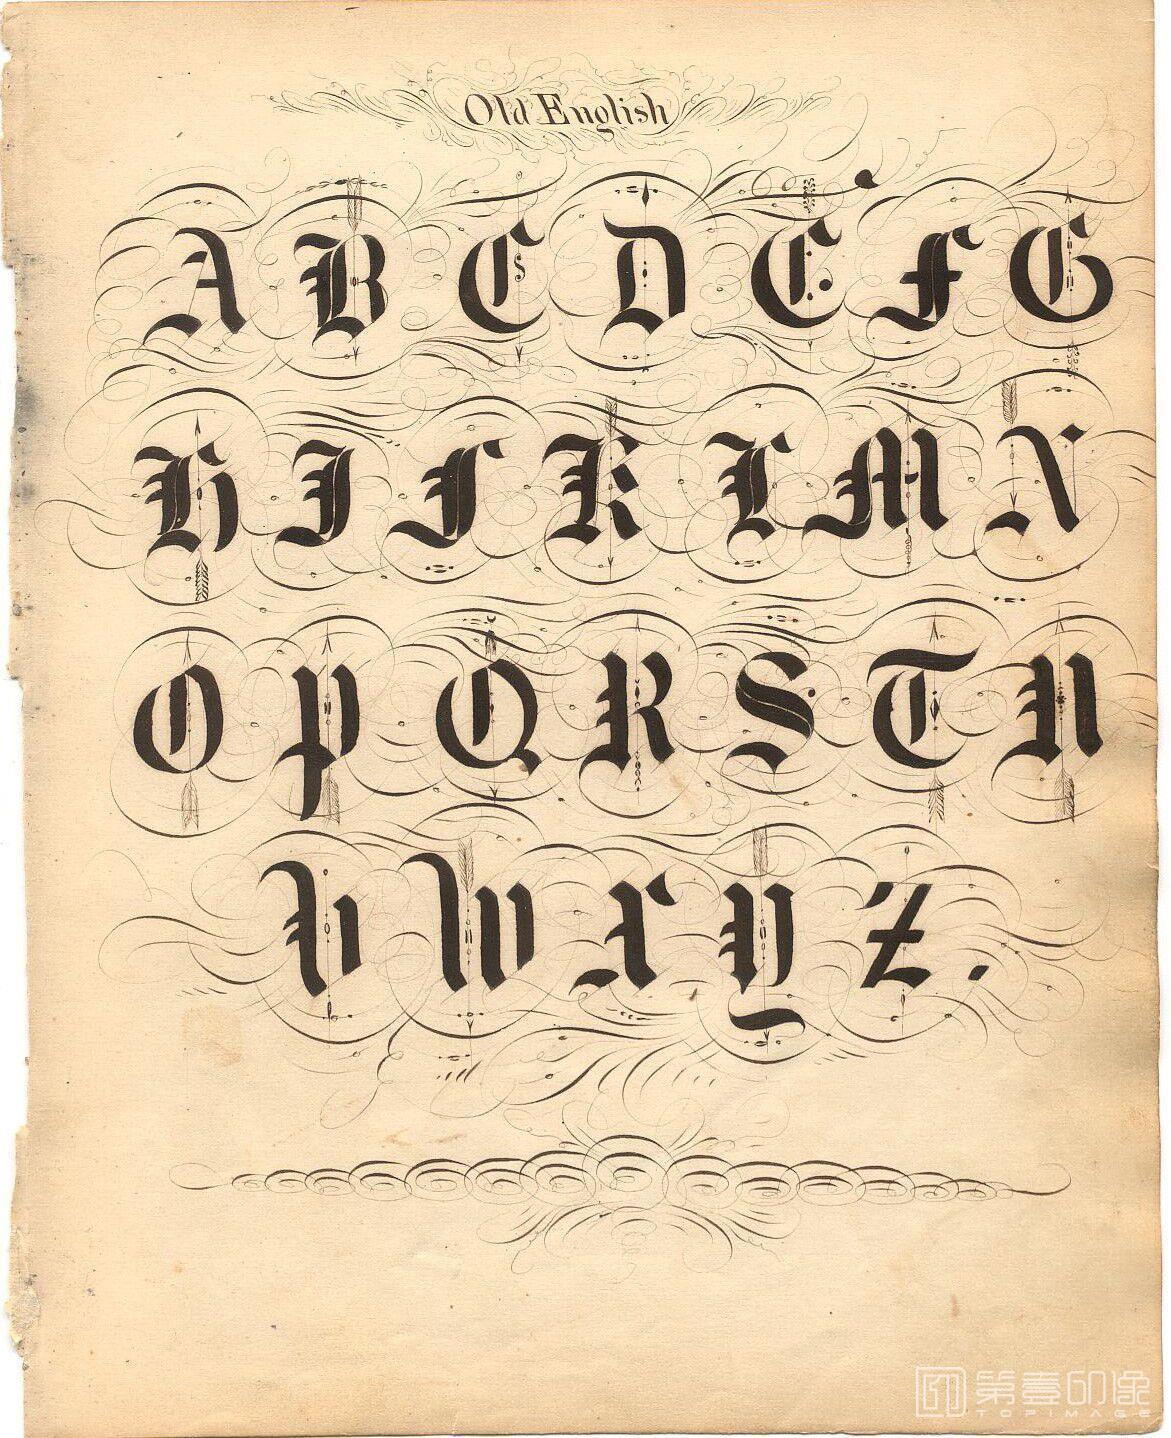 Old English
A B C D E F G
H I J K L M N
O P Q R S T U
V W X Y Z.
第壹印像
TOPIMAGE